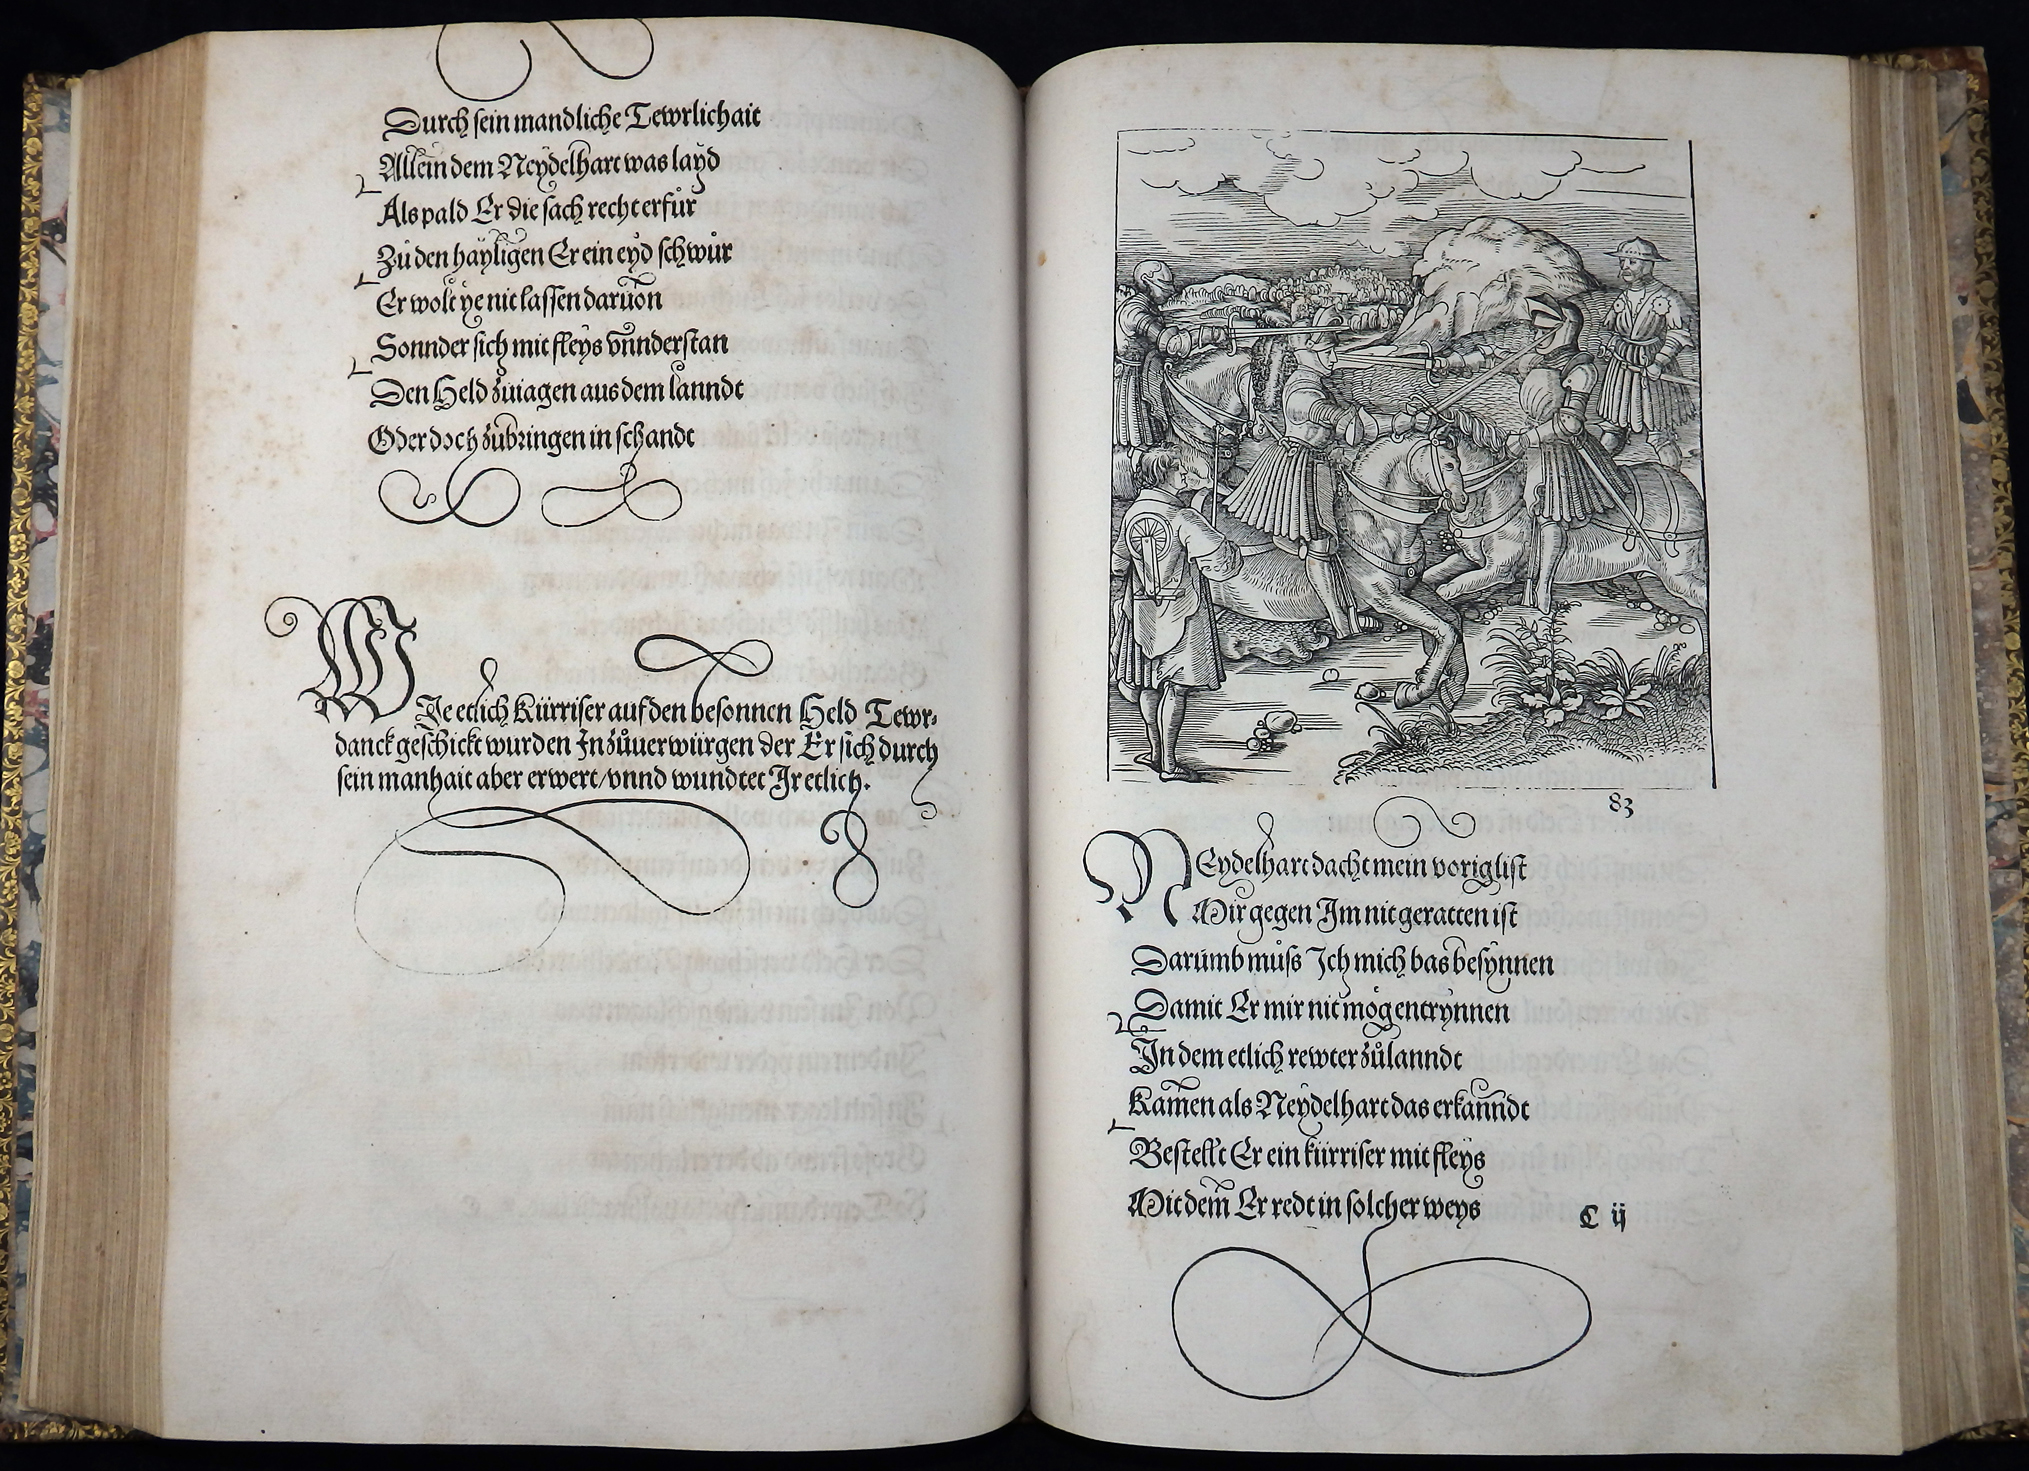 Durch sein mandliche Tewrlichait
Allein dem Neydelhart was layd
Als pald Er die sach recht erfůr
Zů den hayligen Er ein eyd schwůr
Er wolt ye nit lassen daruon
Sonnder sich mit fleys vnnderstan
Den Held zůiagen aus dem lanndt
Oder doch zůbringen in schandt
WJe etlich Kürriser auf den besonnen Held Tewr-
danck geschickt wurden Jn zůuerwürgen der Er sich durch
sein manhait aber erwert/vnnd wundtet Jr etlich.
83
NEydelhart dacht mein vorig list
Mir gegen Jm nit geratten ist
Darumb můss Jch mich bas besynnen
Damit Er mir nit mög entrynnen
Jn dem etlich rewter zůlanndt
Kamen als Neydelhart das erkanndt
Bestellt Er ein kürriser mit fleys
Mit dem Er redt in solcher weys
C ij